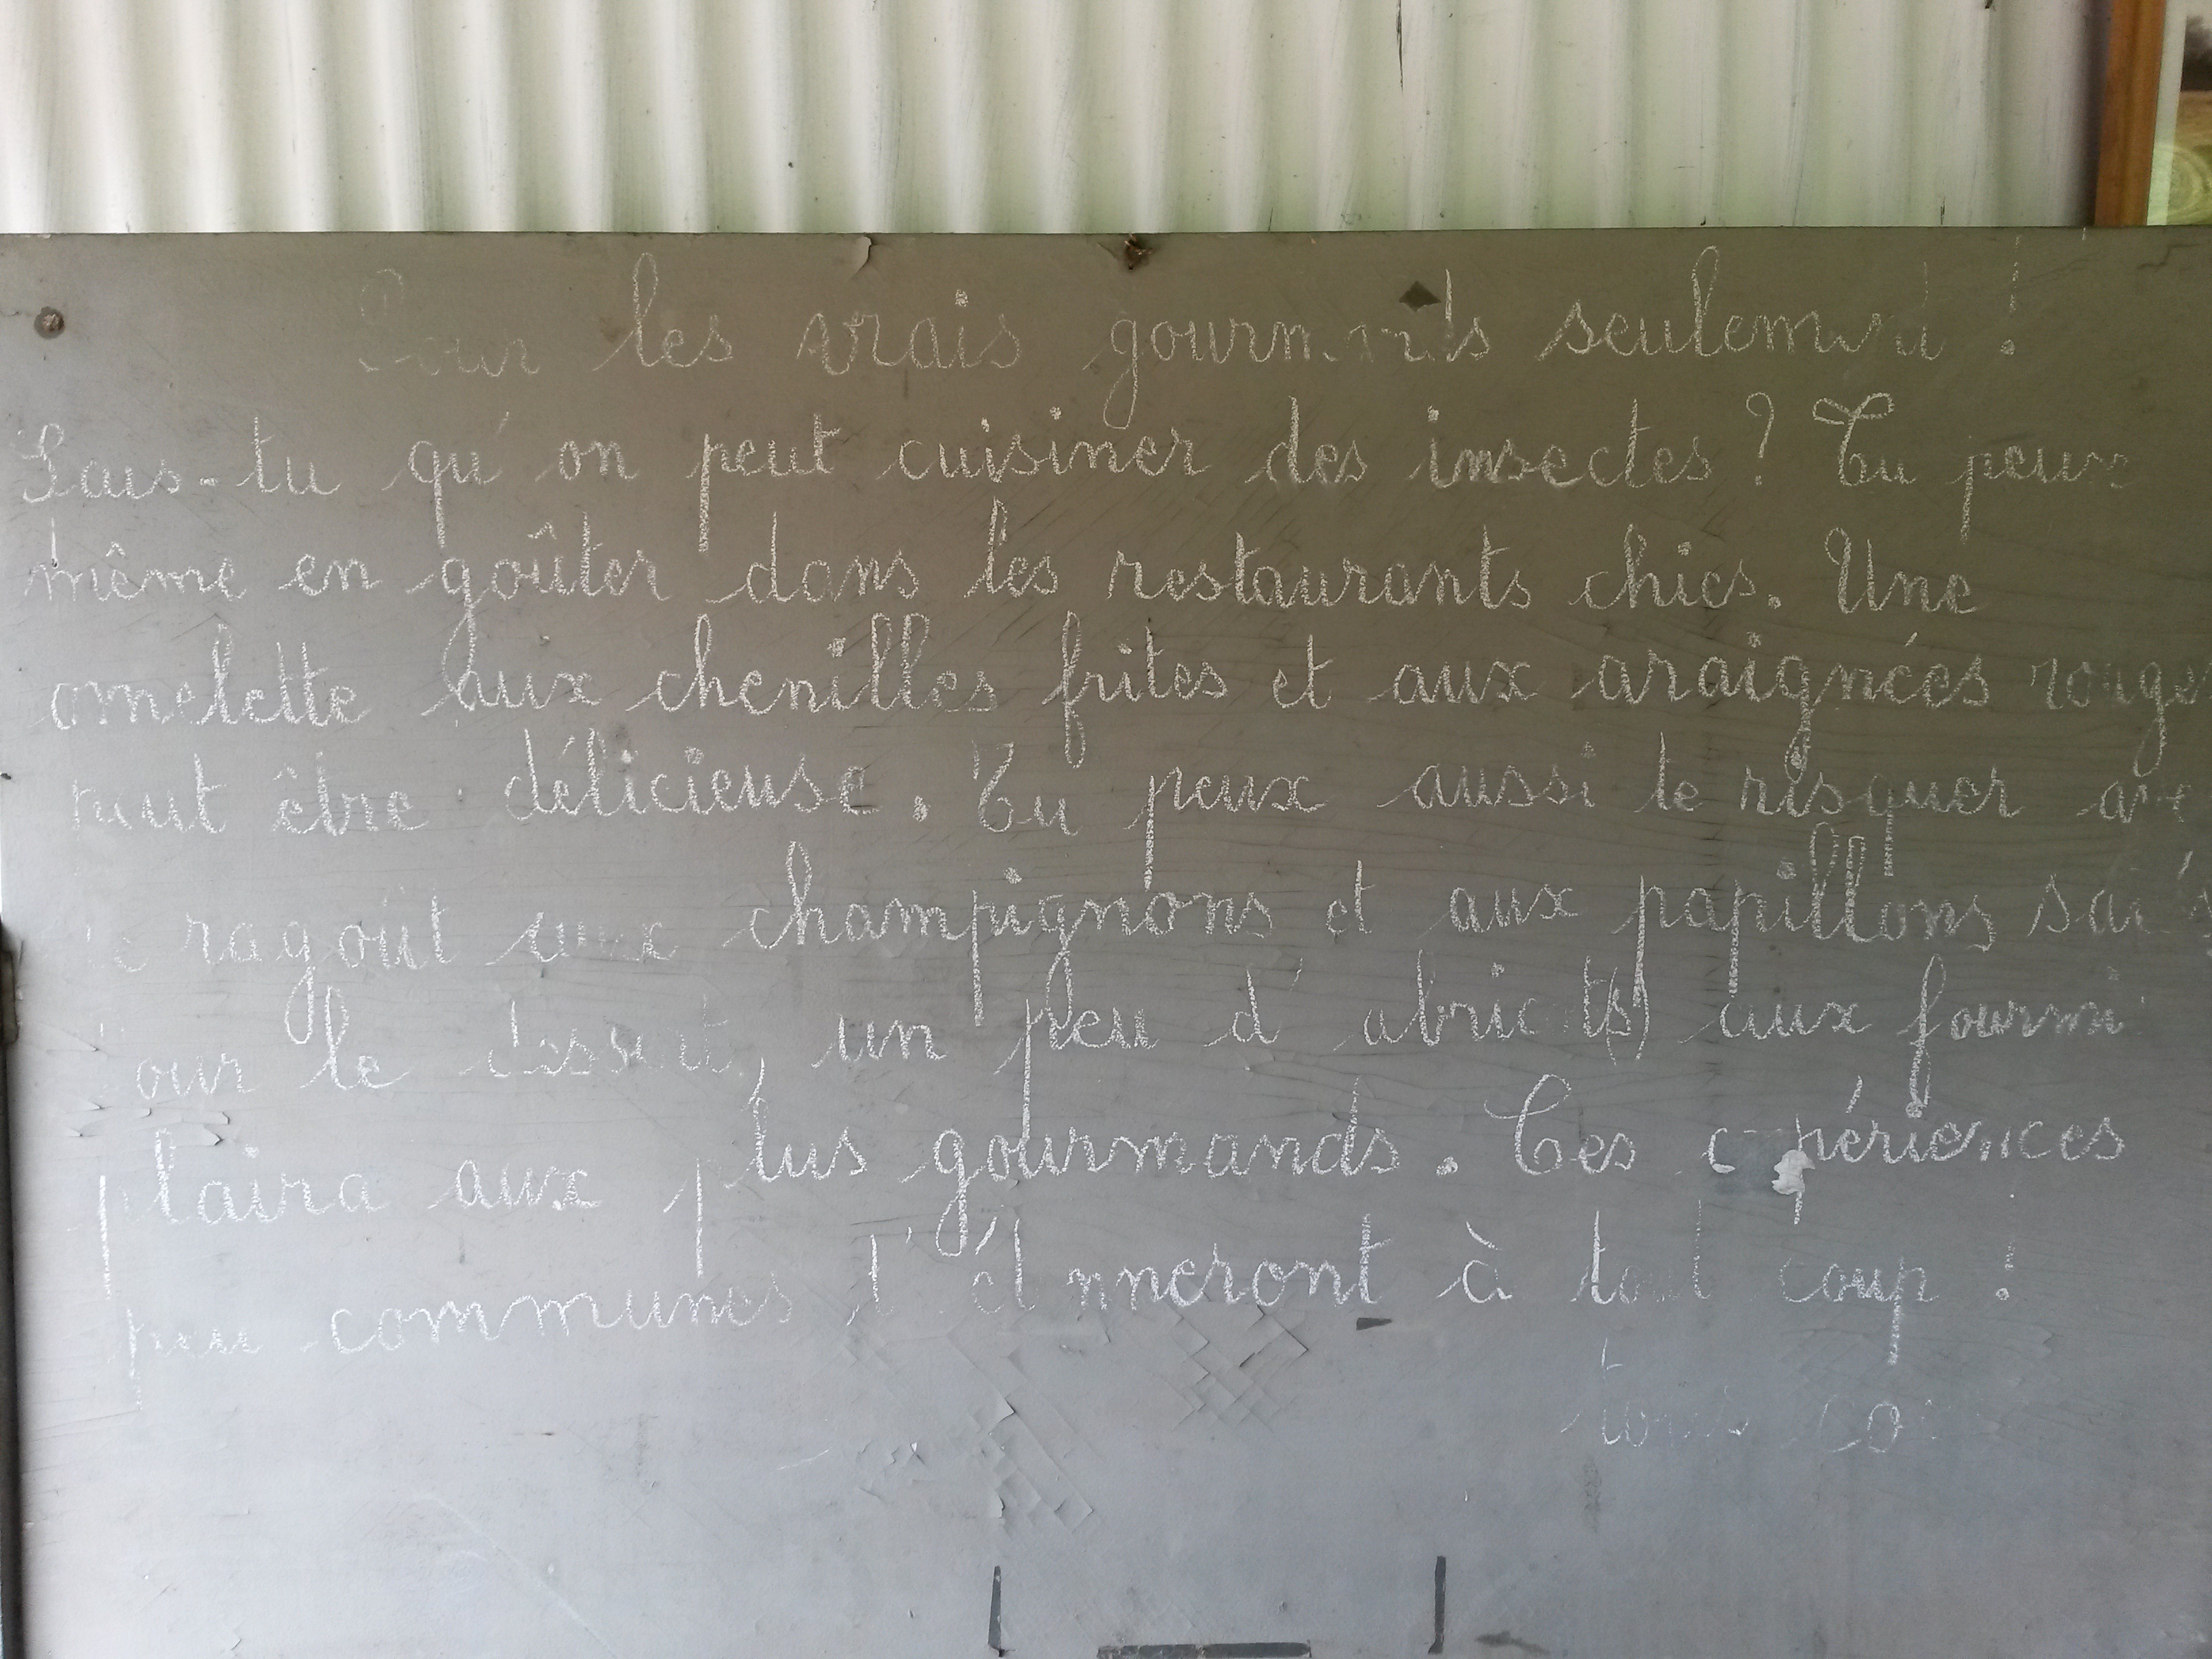 Pour les vrais gourmands seulement !
Sais-tu qu'on peut cuisiner des insectes ? Tu peux
même en goûter dans les restaurants chics. Une
omelette aux chenilles frites et aux araignées rouges
peut être délicieuse. Tu peux aussi te risquer
le ragoût aux champignons et aux papillons
our le dessert, un peu d'abricot(s) aux fourmi
plaira aux plus gourmands. Ces expériences
peu communes t'étonneront à tout coup !